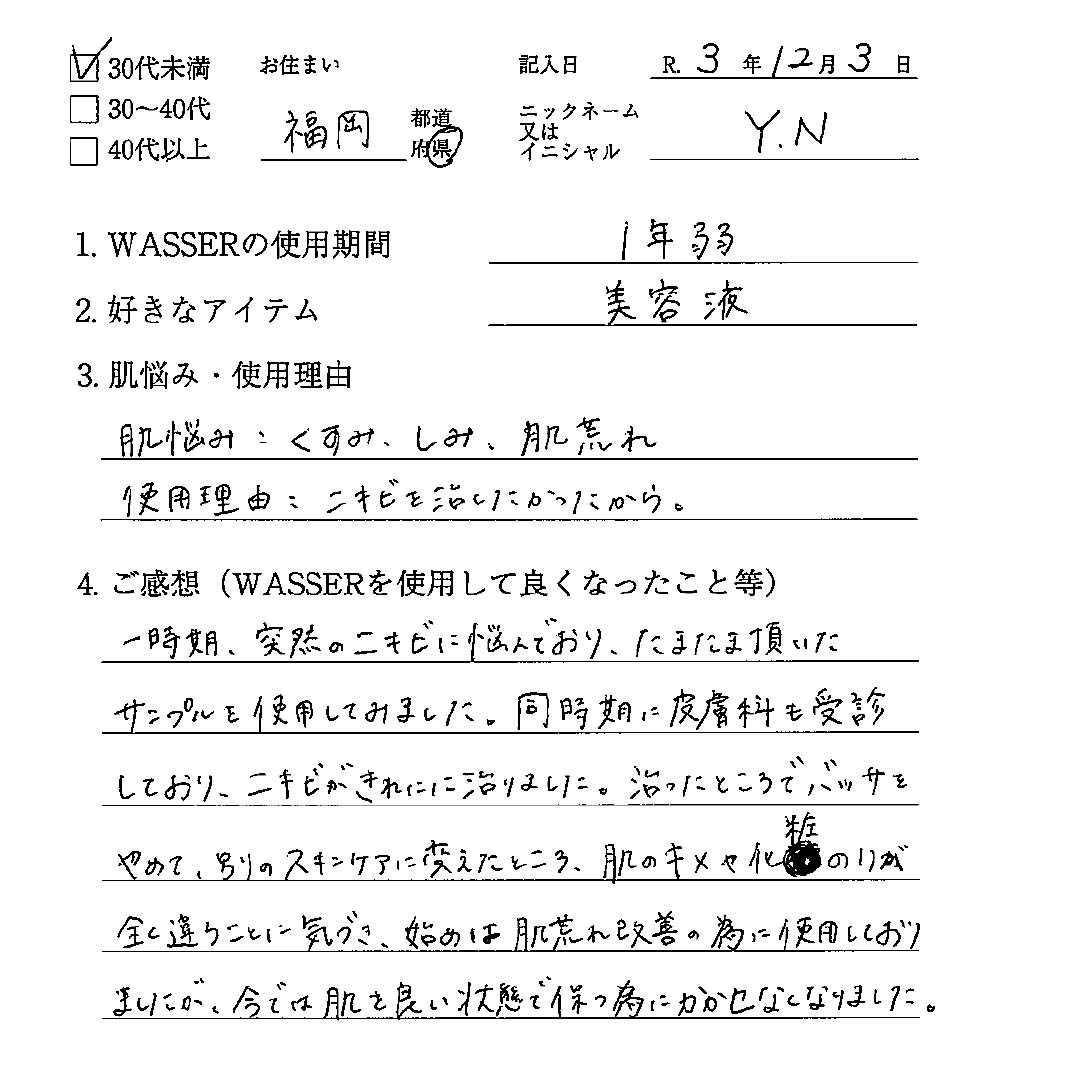 30代未満 お住まい 記入日 R. 3 年 12 月 3 日
30～40代 福岡 都道府県 ニックネーム又はイニシャル Y.N
40代以上
1. WASSERの使用期間 1年弱
2. 好きなアイテム 美容液
3. 肌悩み・使用理由
肌悩み：くすみ、しみ、肌荒れ
使用理由：ニキビを治したかったから。
4. ご感想（WASSERを使用して良くなったこと等）
一時期、突然のニキビに悩んでおり、たまたま頂いた
サンプルを使用してみました。同時期に皮膚科も受診
しており、ニキビがきれいに治りました。治ったところでバッサを
やめて、別のスキンケアに変えたところ、肌のキメや化粧のりが
全く違うことに気づき、始めは肌荒れ改善の為に使用しており
ましたが、今では肌を良い状態で保つ為にかかせなくなりました。